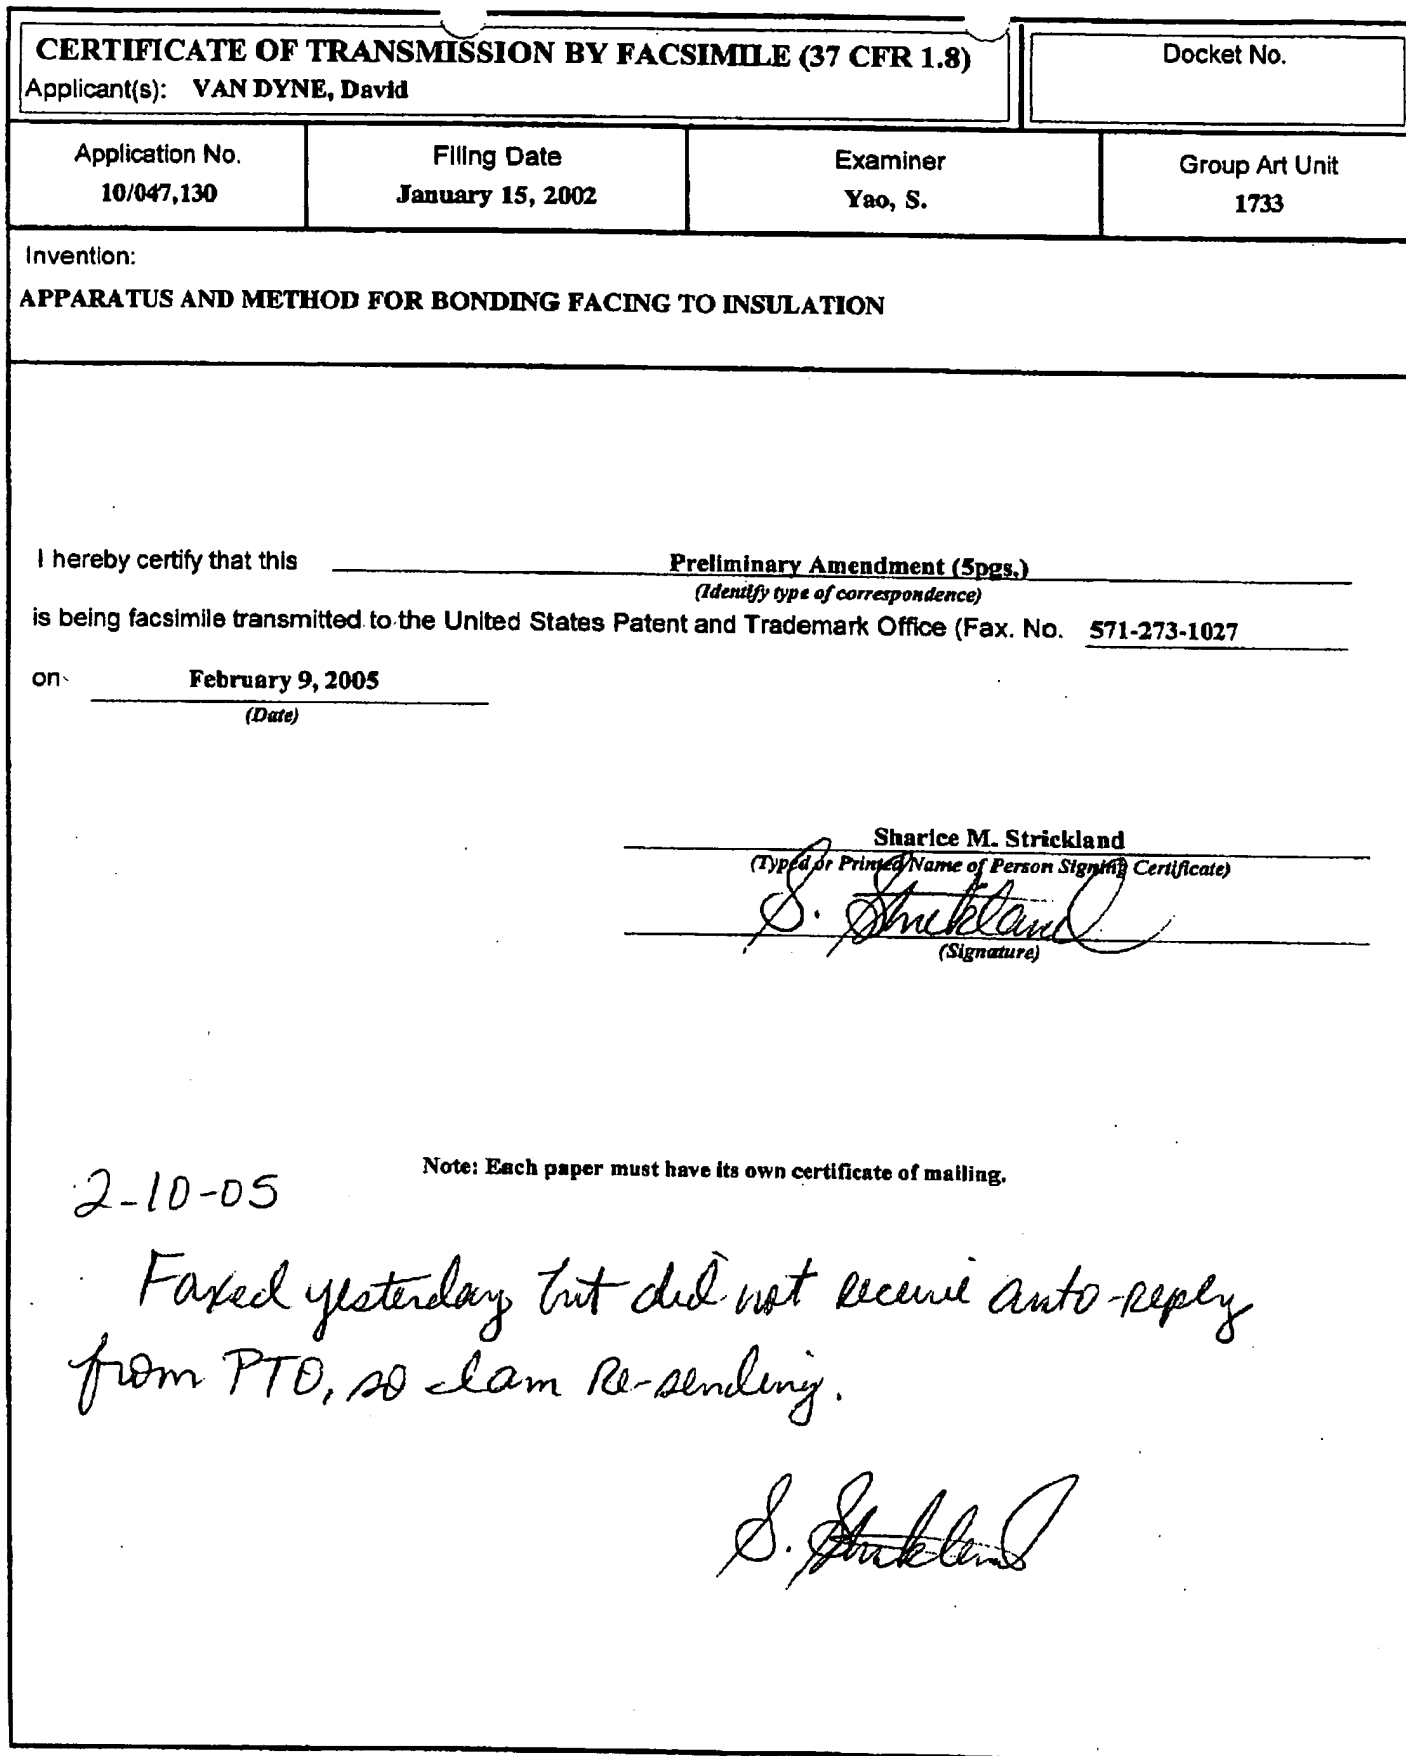 CERTIFICATE OF TRANSMISSION BY FACSIMILE (37 CFR 1.8)
Applicant(s): VAN DYNE, David
Docket No.
Application No.
10/047,130
Filing Date
January 15, 2002
Examiner
Yao, S.
Group Art Unit
1733
Invention:
APPARATUS AND METHOD FOR BONDING FACING TO INSULATION
I hereby certify that this Preliminary Amendment (5pgs.)
(Identify type of correspondence)
is being facsimile transmitted to the United States Patent and Trademark Office (Fax. No. 571-273-1027
on February 9, 2005
(Date)
Sharice M. Strickland
(Typed or Printed Name of Person Signing Certificate)
S. Strickland
(Signature)
Note: Each paper must have its own certificate of mailing.
2-10-05
Faxed yesterday but did not receive auto-reply
from PTO, so I am Re-sending.
S. Strickland